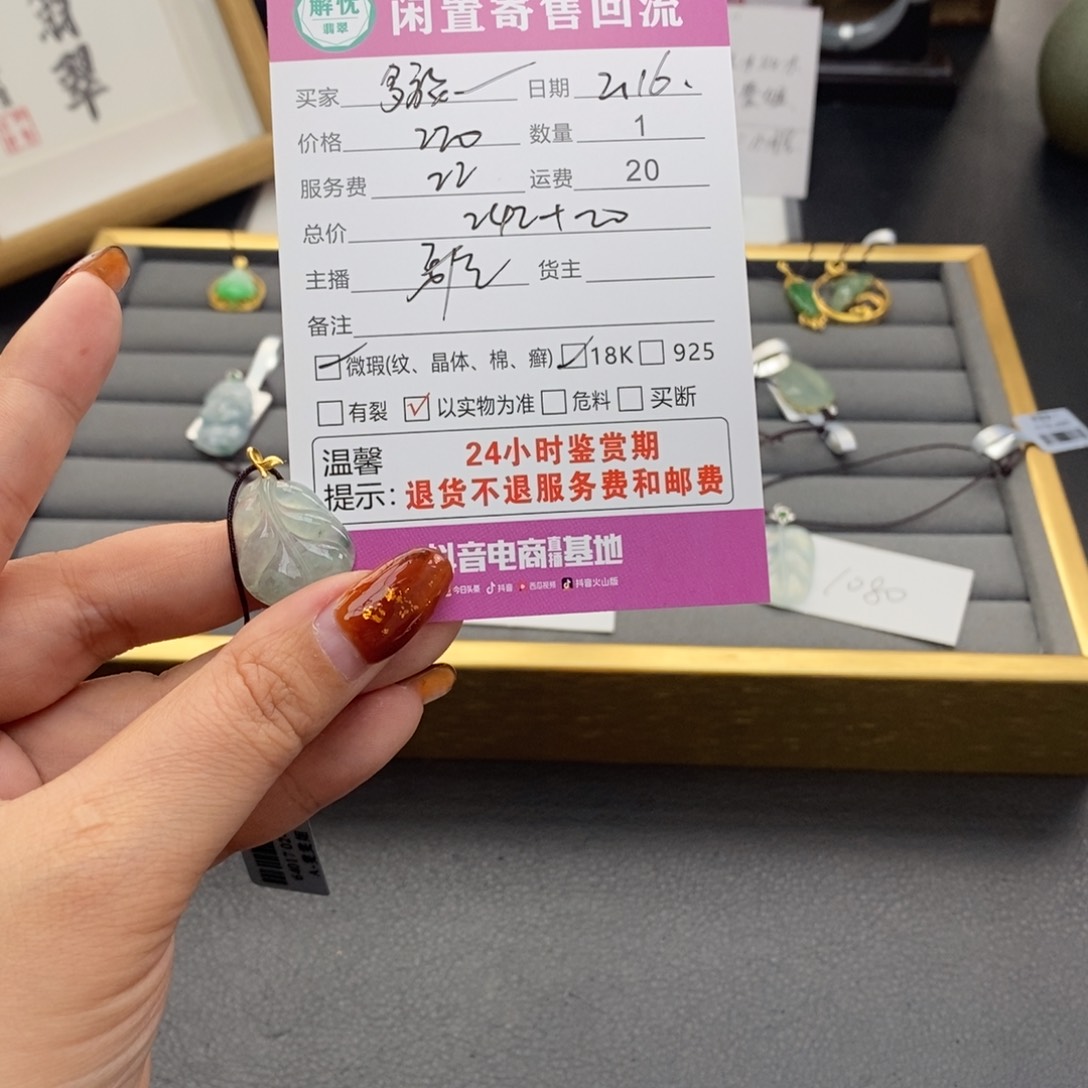 翡翠
解忧
翡翠
闲置寄售回流
买家 日期 2.16.
价格 220 数量 1
服务费 22 运费 20
总价 242+20
主播 货主
备注
微瑕(纹、晶体、棉、癣) 18K 925
有裂 以实物为准 危料 买断
温馨提示: 24小时鉴赏期
退货不退服务费和邮费
抖音电商直播基地
今日头条 抖音 西瓜视频 抖音火山版
1080